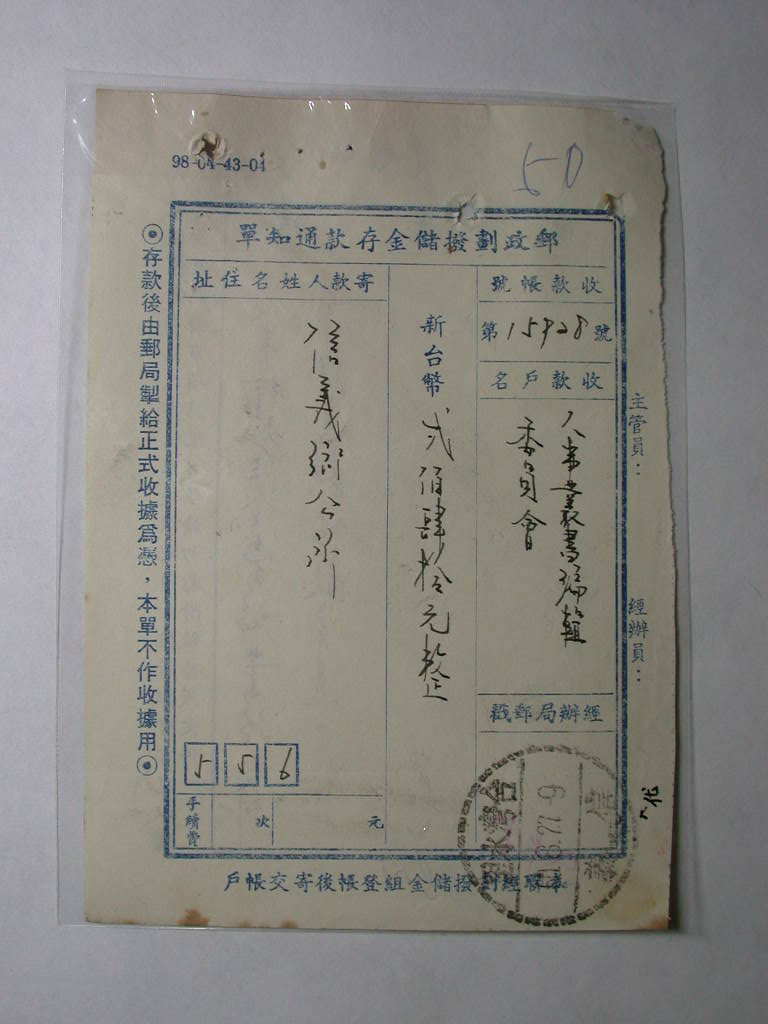 98-04-43-04
50
郵政劃撥儲金存款通知單
收款帳號
第15928號
收款戶名
人事叢書編輯
委員會
經辦局郵戳
新台幣 弍佰肆拾元整
寄款人姓名住址
信義鄉公所
556
手續費
次
元
主管員：
經辦員：
本聯經劃撥儲金組登帳後寄交帳戶
◉存款後由郵局掣給正式收據爲憑，本單不作收據用◉
台灣
信義